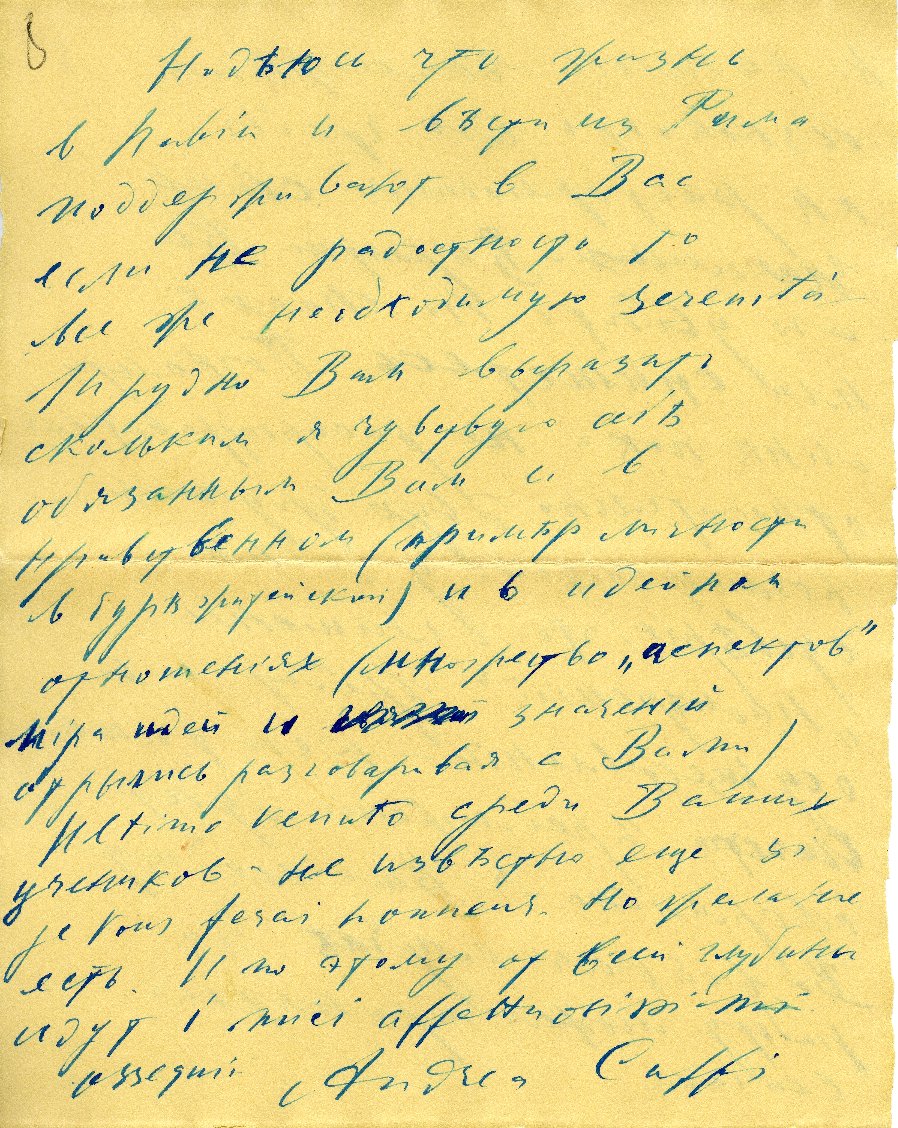 Надѣюсь что жизнь
в Павіи и вѣсти из Рима
поддерживают в Вас
если не радостность то
все же необходимую serenità
Трудно Вам выразить
сколькими я чувствую себѣ
обязанным Вам и в
нравственном (примѣр личности
в бурѣ житейской) и в идейном
отношеніях (множество „аспектов"
міра идей и значеній
открылись разговаривая с Вами)
Ultimo venuto среди Ваших
учеников - не извѣстно еще si
je vous ferai honneur. Но желаніе
есть. И по этому от всей глубины
идут i miei affettuosissimi
ossequii Andrea Caffi